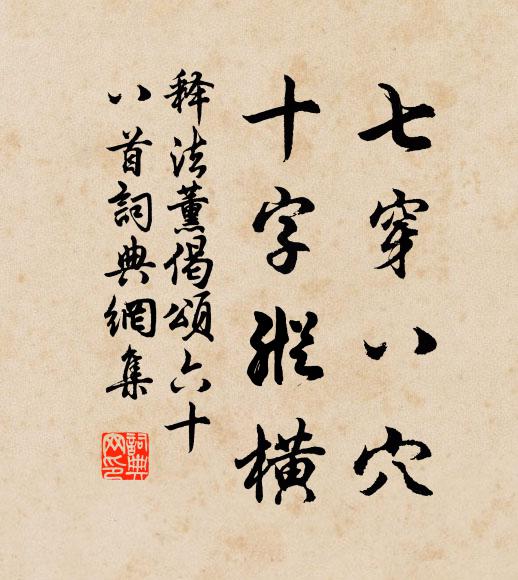 七穿八穴
十字縱橫
释法薰偈頌六十
八首詞典網集
詞典网印